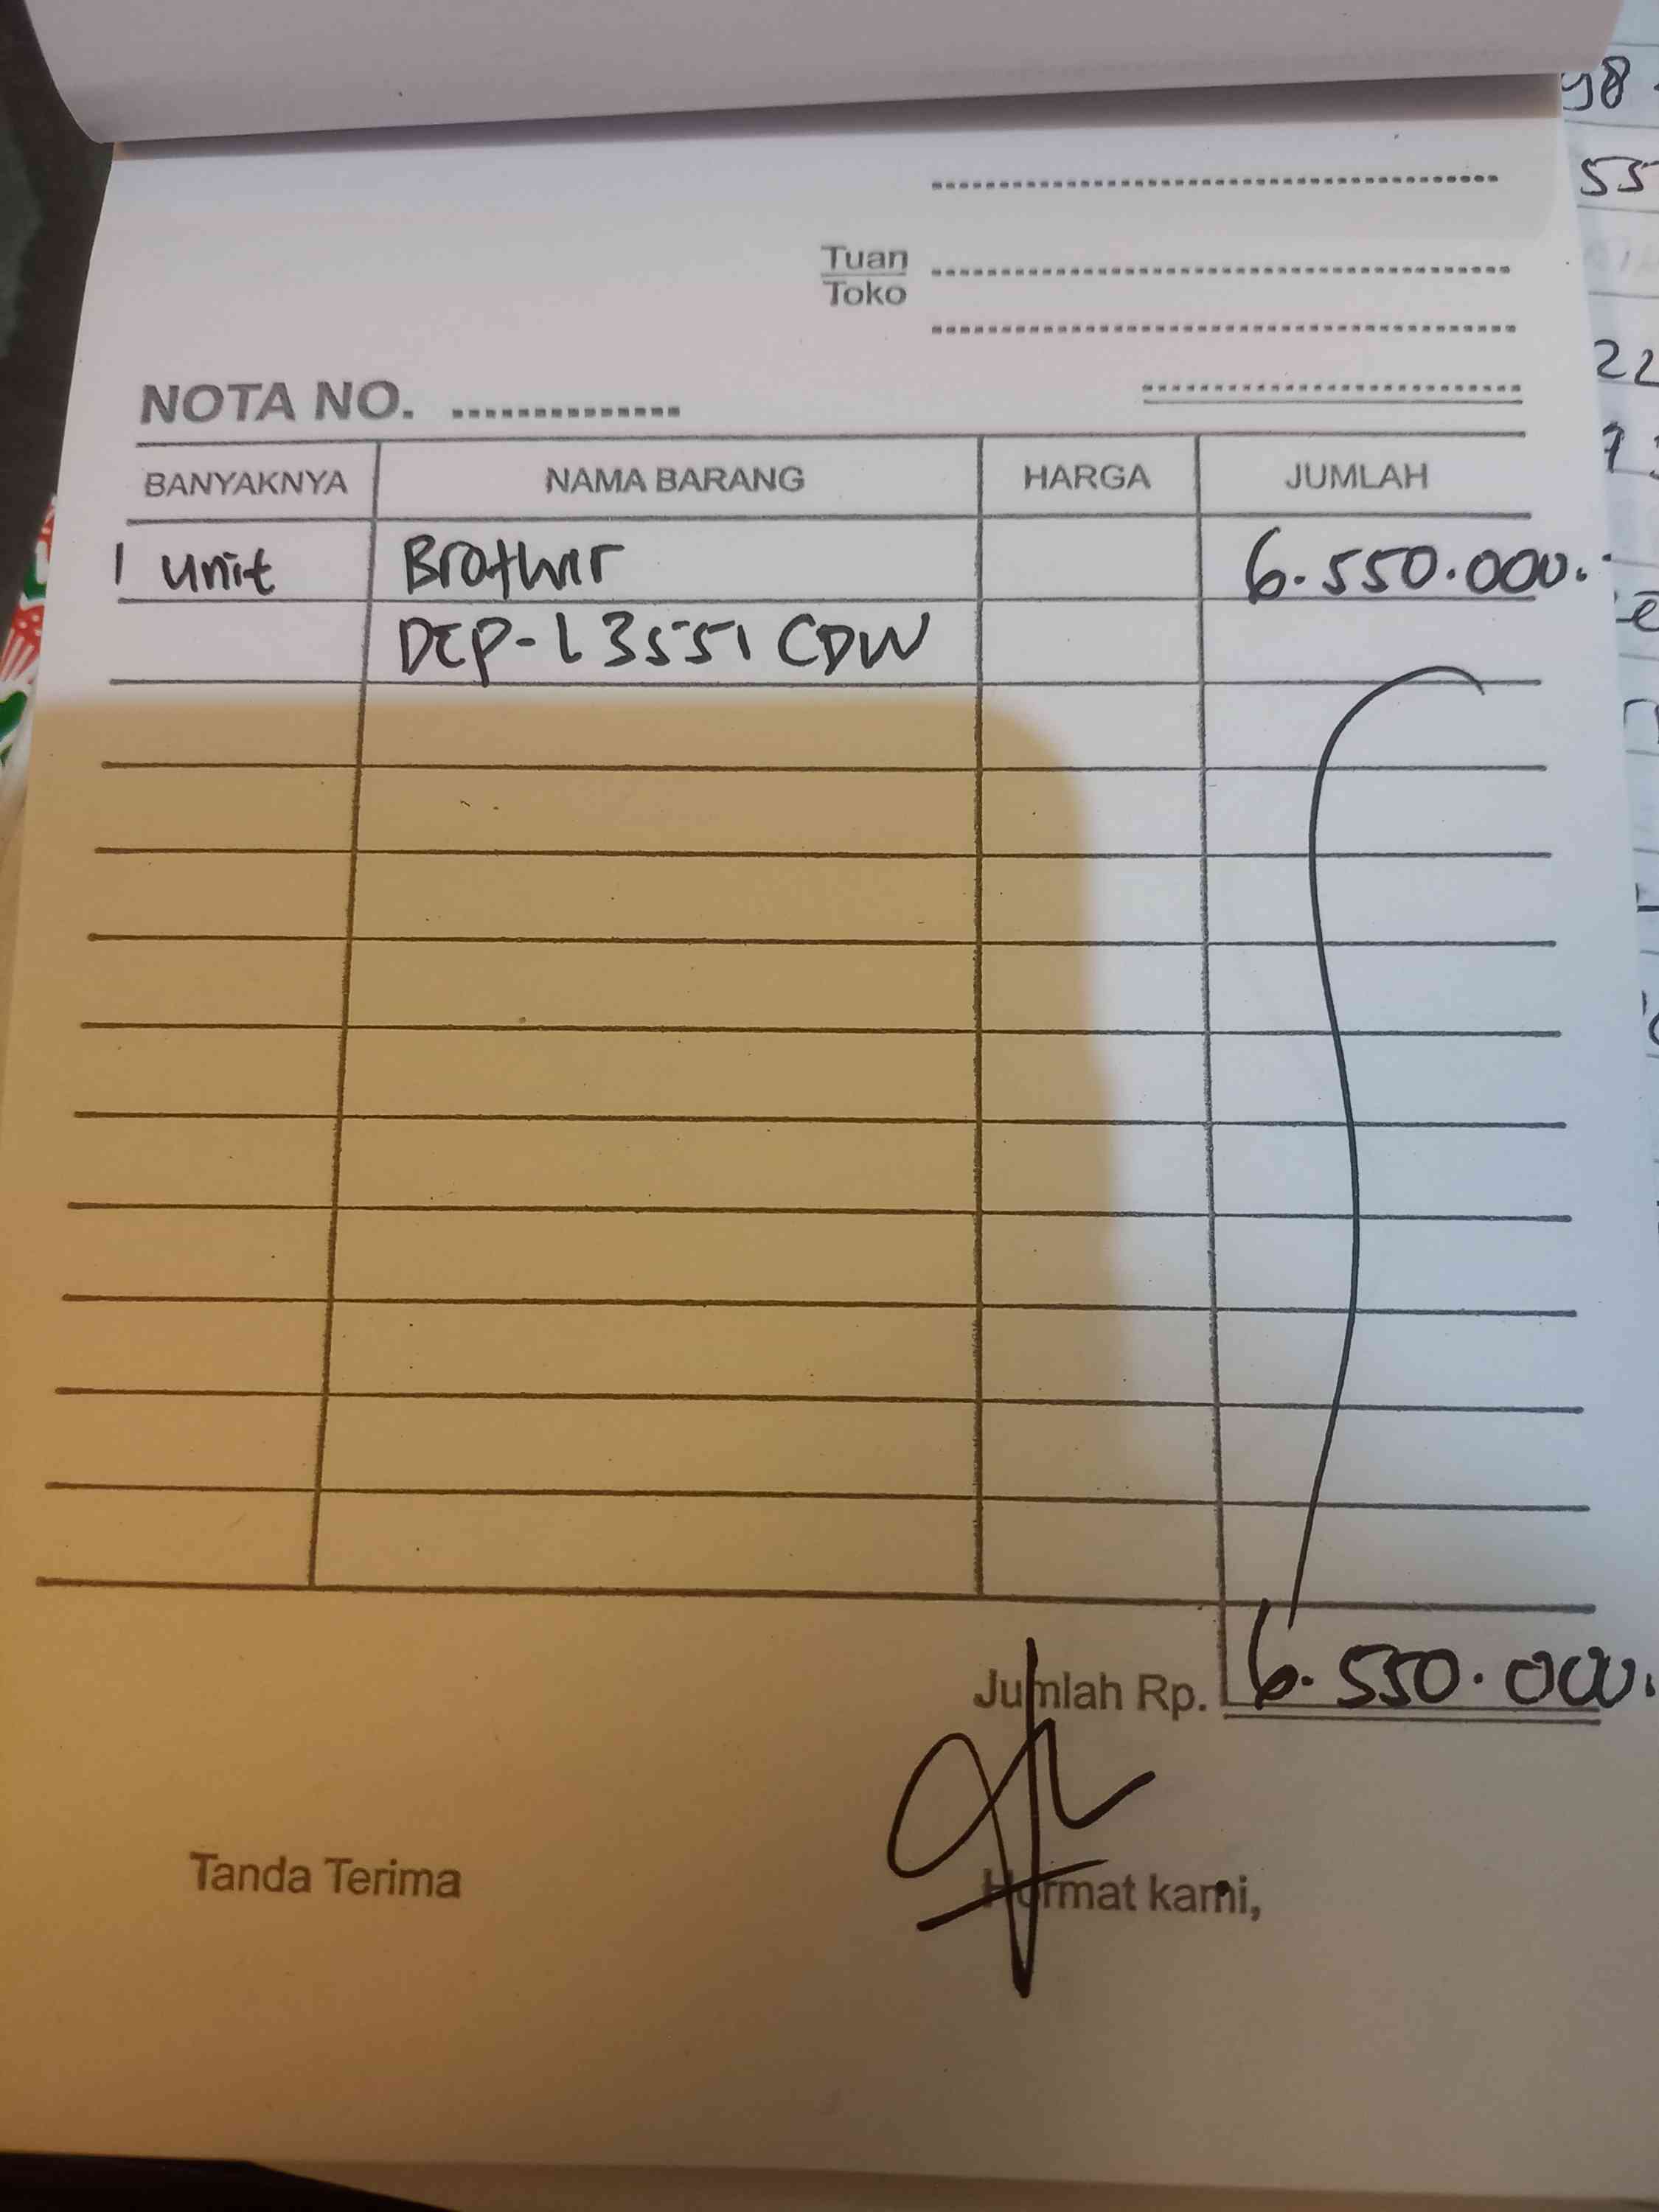 Tuan
Toko
NOTA NO.
BANYAKNYA NAMA BARANG HARGA JUMLAH
1 unit Brother 6.550.000.
DCP-L3551 CDW
Jumlah Rp. 6.550.000.
Tanda Terima Hormat kami,
98
55
22